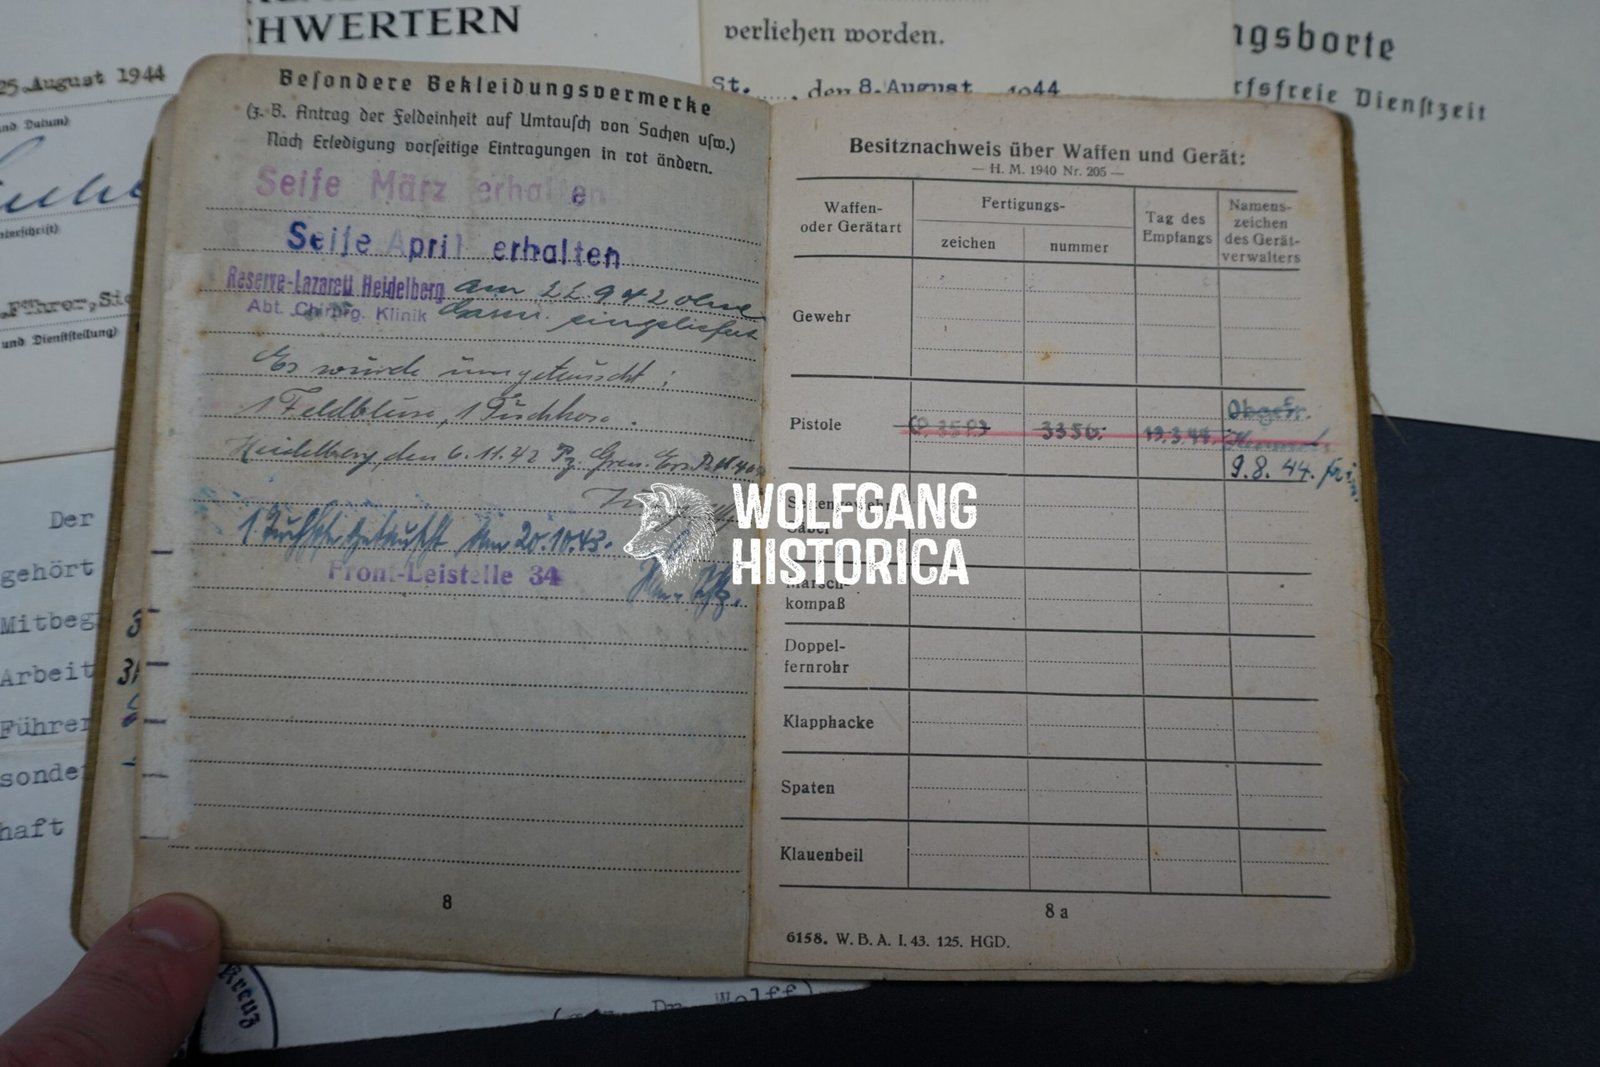 HWERTERN
25. August 1944
und Datum)
terschrift)
.Führer, Sic
und Dienststellung)
verliehen worden.
St. , den 8. August 1944
ngsborte
rfsfreie Dienstzeit
Der
gehört
Mitbeg
Arbeit
Führer
sonde
haft
Besondere Bekleidungsvermerke
(z. B. Antrag der Feldeinheit auf Umtausch von Sachen usw.)
Nach Erledigung vorseitige Eintragungen in rot ändern.
Seife März erhalten
Seife April erhalten
Reserve-Lazarett Heidelberg am 22.9.42 ohne
Abt. Chirurg. Klinik eingeliefert
Es wurde umgetauscht:
1 Feldbluse, 1 Tuchhose.
Heidelberg, den 6.11.42 Pz. Gren. Ers.
1 getauscht den 20.10.43.
Front-Leistelle 34
8
Besitznachweis über Waffen und Gerät:
— H. M. 1940 Nr. 205 —
Waffen- oder Gerätart
Fertigungs-
zeichen
nummer
Tag des Empfangs
Namens-zeichen des Gerät-verwalters
Gewehr
Pistole 3350. 19.3.44. Obgefr.
9.8.44.
Marsch-
kompaß
Doppel-
fernrohr
Klapphacke
Spaten
Klauenbeil
8 a
6158. W. B. A. I. 43. 125. HGD.
WOLFGANG
HISTORICA
Kreuz
Dr. Wolff)